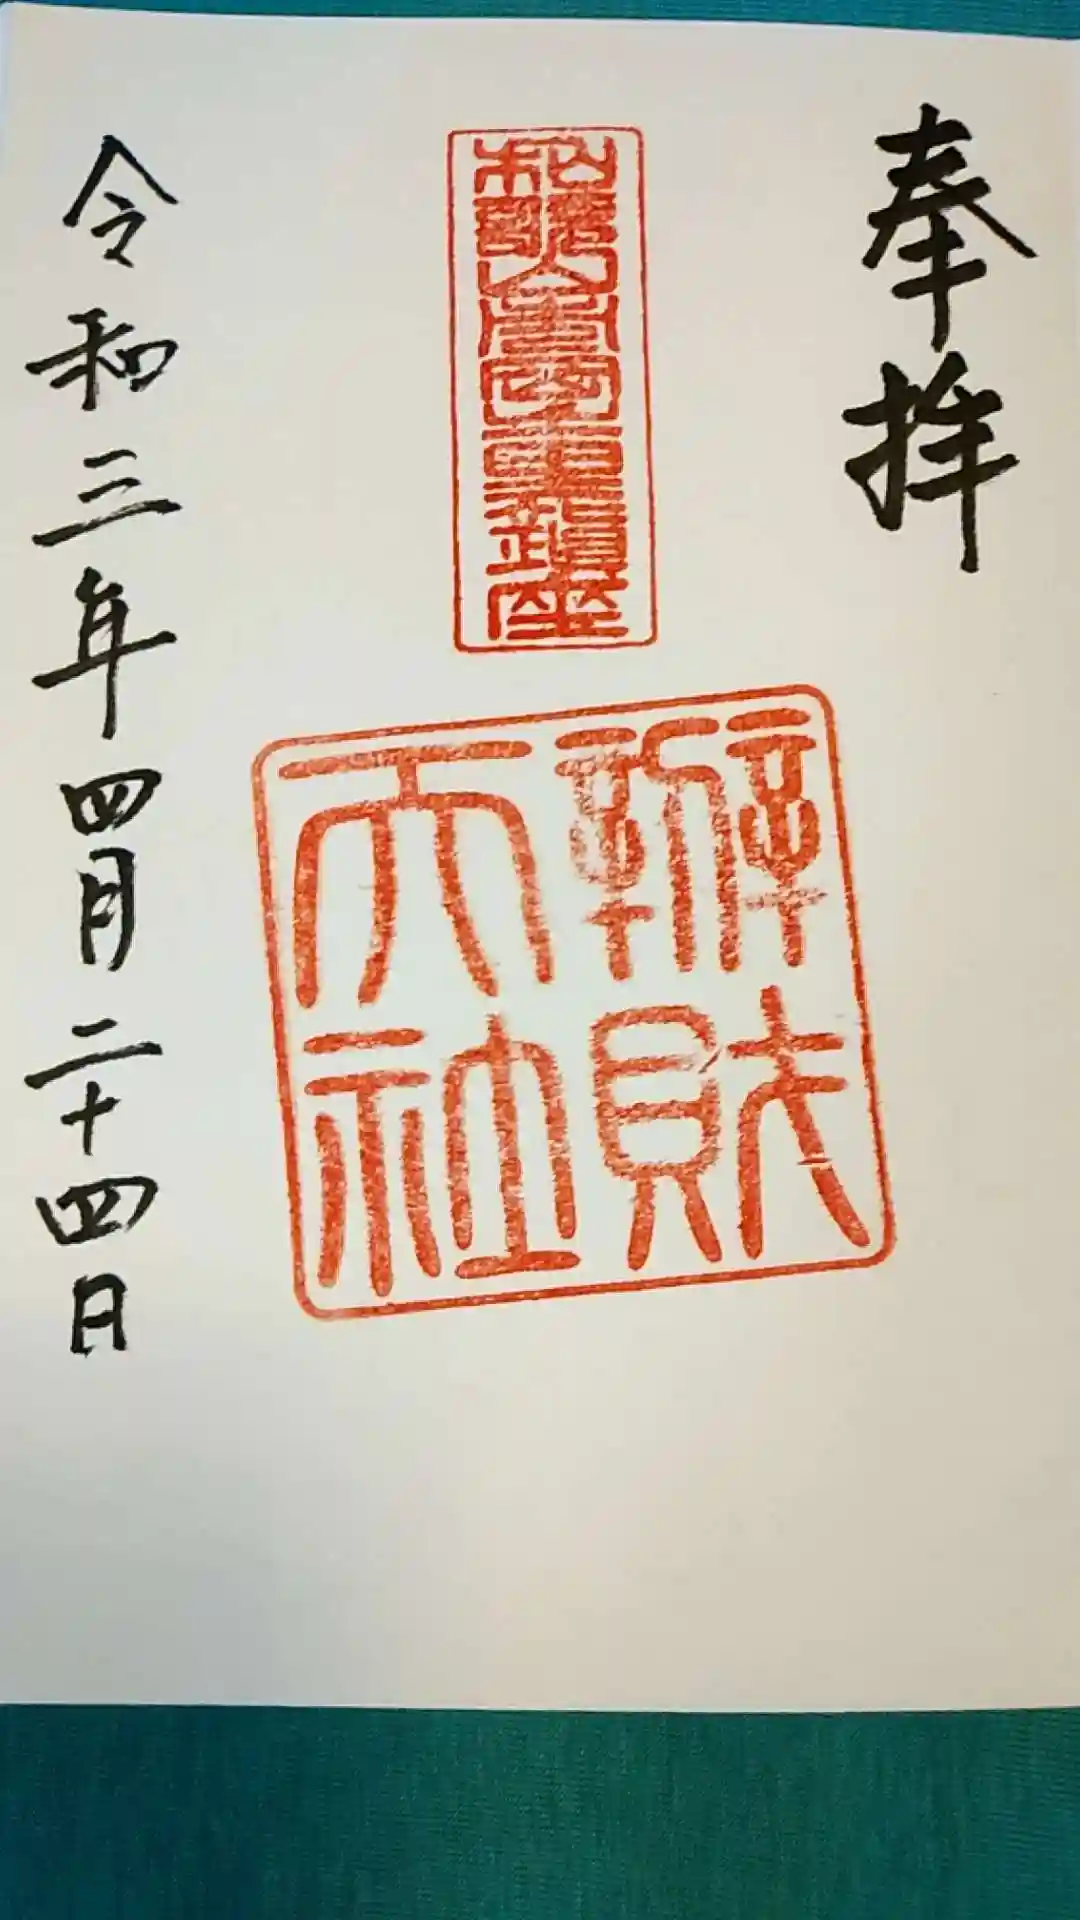 奉拝
鎮座
辨財
天社
令和三年四月二十四日